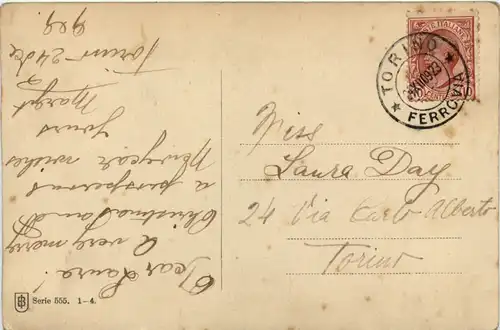 Dear Laura!
A very merry
Christmas and
a prosperous
New year wishes
yours
Margt
Torino 24 dic
909
TORINO
FERROVIA
POSTE ITALIANE
CENT 10
Miss
Laura Day
24 Via Carlo Alberto
Torino
Serie 555. 1-4.